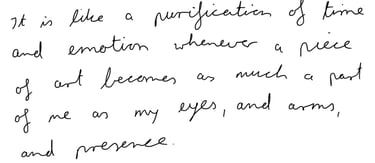 It is like a purification of time
and emotion whenever a piece
of art becomes as much a part
of me as my eyes, and arms,
and presence.